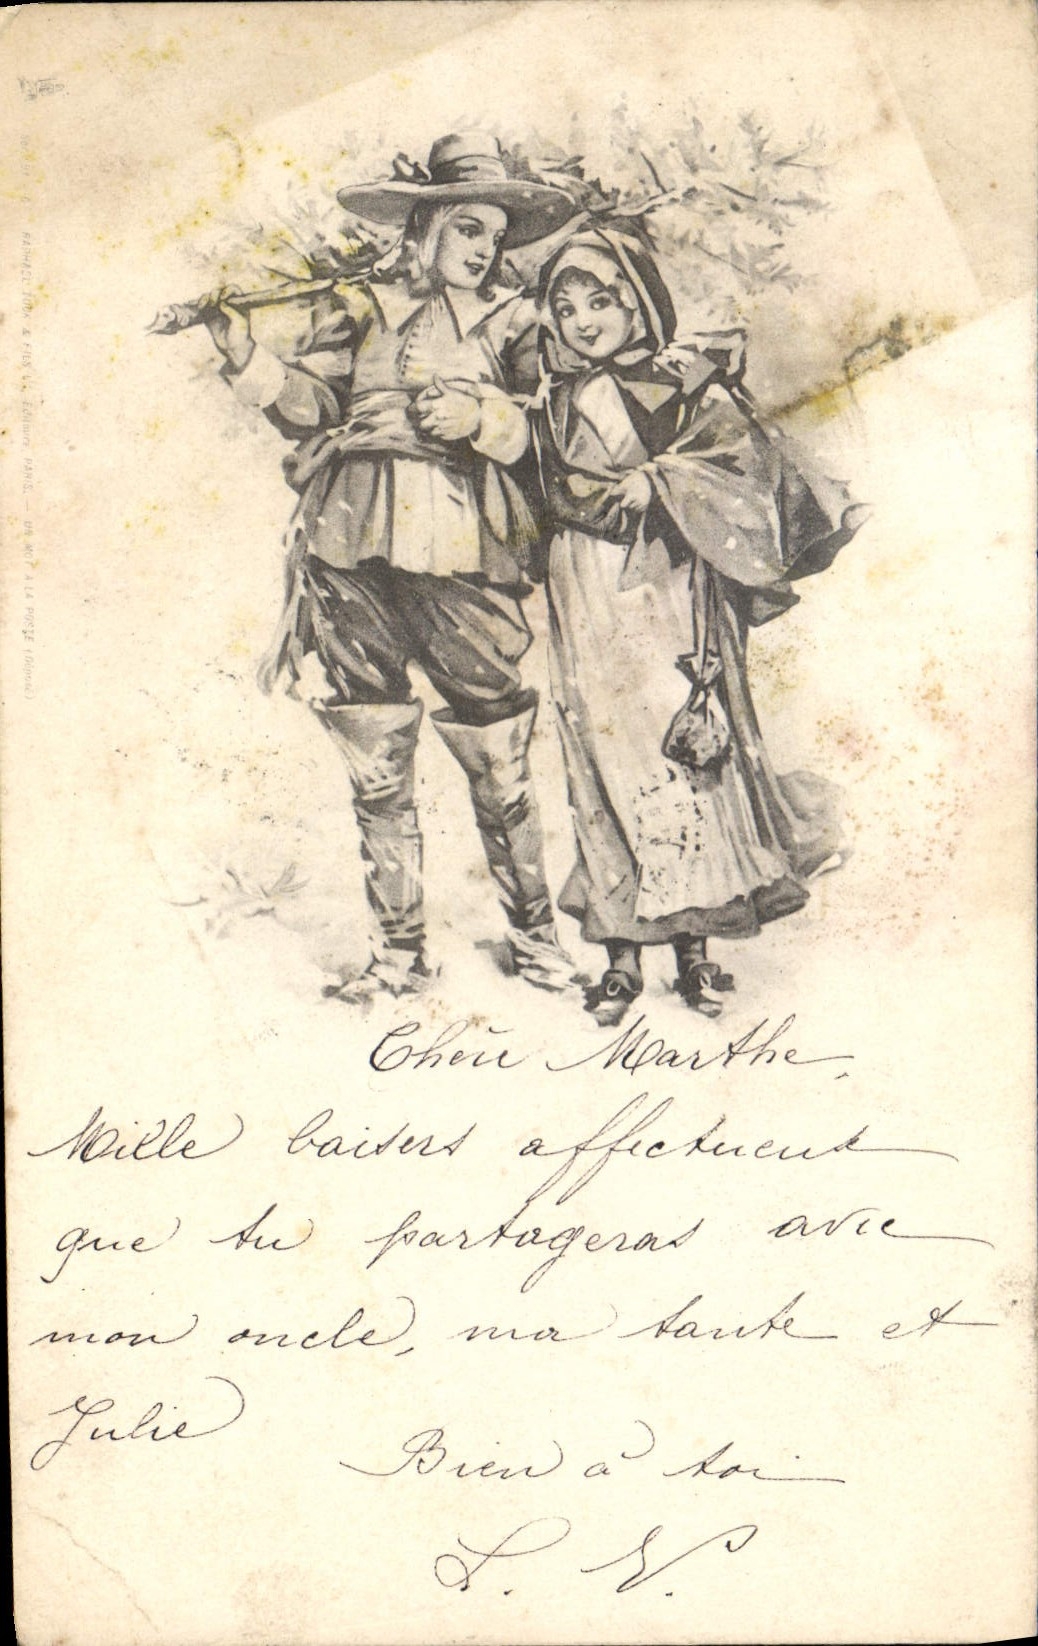 RAPHAEL TUCK & FILS Ld, Editeurs, PARIS. — UN MOT A LA POSTE (Déposé)
Chère Marthe,
Mille baisers affectueux
que tu partageras avec
mon oncle, ma tante et
Julie
Bien à toi
L. V.